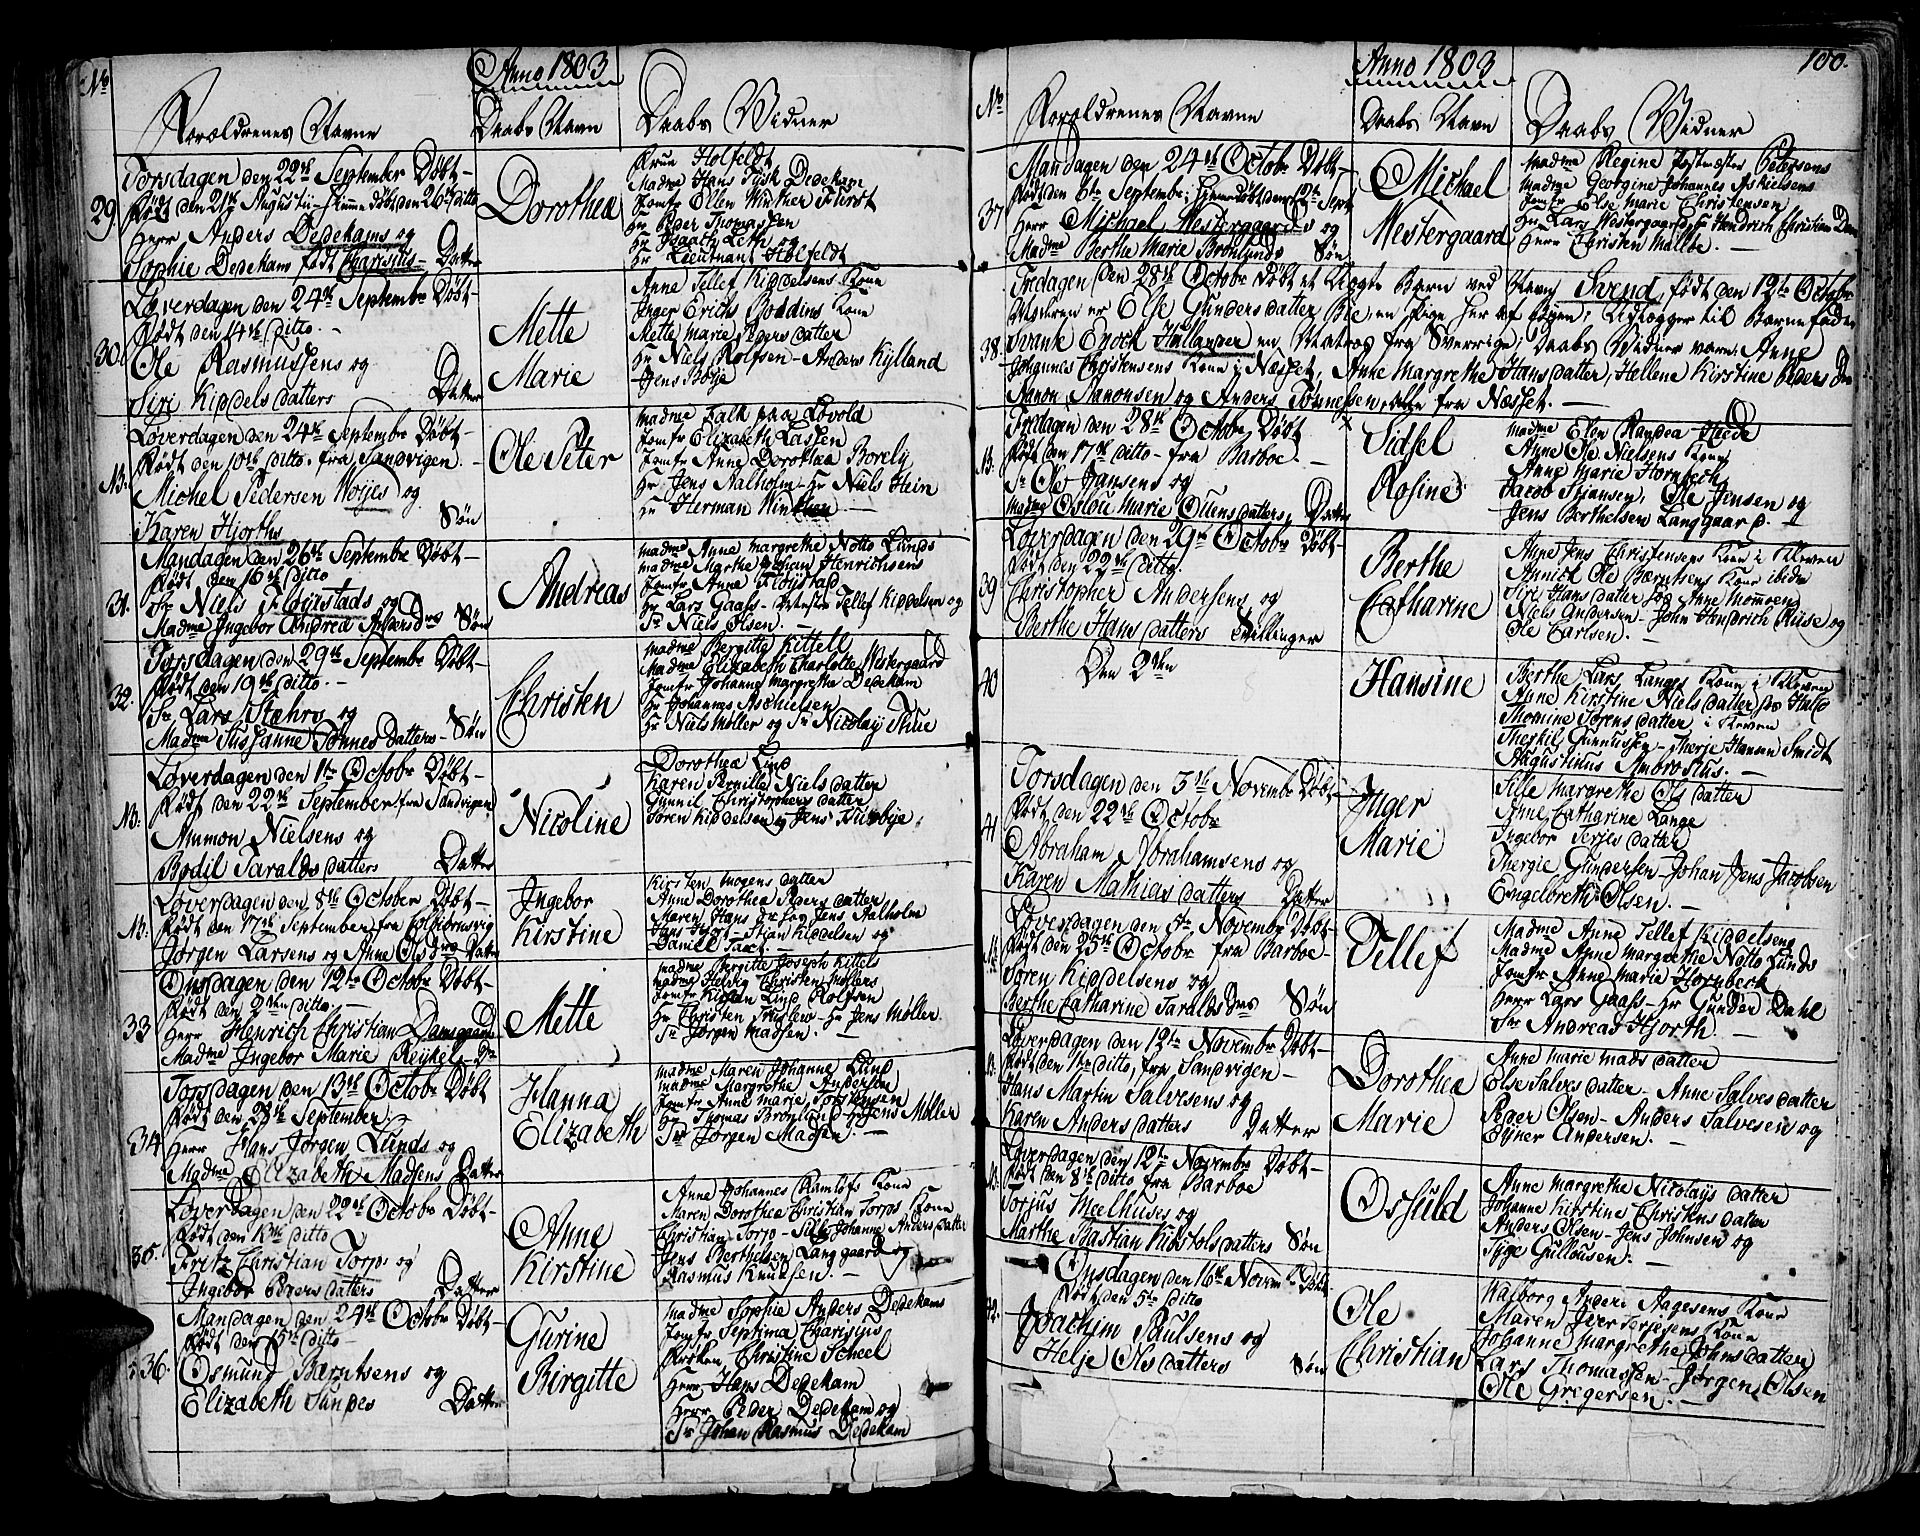 No
Anno 1803
Forældrenes Navne
Daabs Navn
Daabs Vidner
29.
Torsdagen den 22de September Døbt
Født den 21de Augustii - Hiemedøbt den 26de ditto
Herr Anders Dedekams og
Sophie Dedekam født Charisius - Datter
Dorothea
Frue Holfeldt
Madme Hans Tysk Dedekam
Jomfr Ellen Winther Fürst
Hr Peder Thomassen
Hr Isaach Leth og
Hr Lieutnant Holfeldt
30.
Løverdagen den 24de Septembr Døbt
Født den 14de ditto.
Ole Rasmussens og
Siri Kiddels datters Datter
Mette
Marie
Anne Tellef Kiddelsens Kone
Inger Erichs Boddins Kone
Mette Marie Peders datter
Hr Niels Rolfsen - Anders Kylland
Jens Boije
N.B.
Løverdagen den 24de Septembr Døbt
Født den 10de ditto. fra Sandvigen.
Michel Pedersen Woijes og
Karen Hjorths Søn
Ole Peter
Madme Falk paa Løvold
Jomfr Elizabeth Lassen
Jomfr Anne Dorothea Borely
Hr Jens Aalholm - Hr Niels Hein
Hr Herman Winther
31.
Mandagen den 26de Septembr Døbt
Født den 16de ditto
Sr Niels Fløyistads og
Madme Ingebor Andrea Anders Drs Søn
Andreas
Madme Anna Margrethe Notto Lunds
Madme Marthe Johan Henrichsens
Jomfr Anne Fløystad
Hr Lars Gaass - Tellef Kiddelsen og
Sr Niels Olsen.
32.
Torsdagen den 29de Septembr Døbt
Født den 19de ditto.
Sr Lars Stæhrs og
Madme Sussanne Tønnes datters - Søn
Christen
Madme Bergitte Kittell
Madme Elizabeth Charlotte Westergaard
Jomfr Johanne Margrethe Dedekam
Hr Johannes Aschielsen
Hr Niels Møller og Sr Nicolay Thue
N.B.
Løverdagen den 1te Octobr Døbt
Født den 22de September fra Sandvigen
Ammon Nielsens og
Bodil Taralds datters Datter
Nicoline
Dorothea Lind
Karen Pernille Niels datter
Gunnil Christophers datter
Søren Kiddelsen og Jens Buebye.
N.B.
Løverdagen den 8de October Døbt
Født den 17de September fra Colbiørnsvig
Jørgen Larsens og Anne Ols drs Datter
Ingebor
Kirstine
Kirsten Mogens datter
Anne Dorothea Peders datter
Maren Hans Jens Aalholm
Hans Hjort - Stian Kiddelsen og
Daniel Taxt.
33
Onsdagen den 12te Octobr Døbt
Født den 2den ditto.
Herr Henrich Christian Damsgaards
Madme Ingebor Marie Reykels Dr
Mette
Madme Bergitte Joseph Kittels
Madme Helvig Christen Møllers
Jomfr Kirsten Lind Rolfsen
Hr Christen Truslew - Hr Jens Møller
Sr Jørgen Madsen.
34
Torsdagen den 13de Octobr Døbt
Født den 23de September.
Herr Hans Jørgen Lunds og
Madme Elizabeth Madsens Datter
Hanna
Elizabeth
Madme Maren Johanne Lund
Madme Margrethe Andersen
Jomfr Anne Marie Torstensen
Hr Thomas Brønlund - Hr Jens Møller
Sr Jørgen Madsen.
35.
Løverdagen den 22de Octobr Døbt
Født den ditto
Fritz Christian Torps og
Ingebor Peders datters Datter
Anne
Kirstine
Anne Johannes Ramlofs Kone
Maren Dorothea Christian Torps Kone
Christian Torp - Johanne Anders datter
Jens Berthelsen Langgaard og
Rasmus Knudsen.
36.
Mandagen den 24de Octobr Døbt
Født den 15de ditto
Osmund Bærntsens og
Elizabeth Sundes Datter
Gurine
Birgitte
Madme Sophie Anders Dedekams
Jomfr Septima Charisius
Frøken Christine Scheel
Herr Hans Dedekam
Herr Peder Dedekam og
Sr Johan Rasmus Dedekam
100.
No
Anno 1803
Forældrenes Navne
Daabs Navn
Daabs Vidner
37
Mandagen den 24de Octobr Døbt
Født den 6te Septembr; Hiemedøbt den 12te Septr
Herr Michael Westergaards og
Madme Berthe Marie Brønlunds Søn
Michael
Westergaard
Madme Regine Postmester Petersens
Madme Georgine Johannes Askielsens
Jomfr Else Marie Christensen
Hr Lars Westergaard, Hr Hendrich Christian Dam
Herr Christen Mallbe.
38.
Fredagen den 28de Octobr Døbt et Uægte Barn ved Navn Svend født den 12te Octobr
Moderen er Else Gunders datter Bie, en Pige her af Egen; Udlægger til Barnefader
Svante Enock Hollander en Matros fra Sverrige; Daabs Vidner var: Anne
Johannes Christensens Kone i Næsset, Anne Margrethe Hans datter, Hellene Kirstine Peders Dr
Aanon Aanonsen og Anders Tønnessen, alle fra Næsset.
N.B.
Fredagen den 28de Octobr Døbt
Født den 17de ditto - fra Barboe.
Sr Ole Jansens og
Madme Eslou Marie Ouens datters Datter
Sidsel
Rosine
Madme Elen Randea Thede
Anne Ole Nielsens Kone
Anne Marie Hornbech
Jacob Stiansen, Ole Jensen og
Jens Berthelsen Langgaard.
39
Løverdagen den 29de Octobr Døbt
Født den 22de ditto.
Christopher Andersens og
Berthe Hans datters Tvillinger
Berthe
Catharine
Anne Jens Christensens Kone i Kleven
Annich Ole Bærntsens Kone ibidm
Siri Hans datter og Anne Mommoen
Niels Andersen - John Hendrich Riise og
Ole Carlsen.
40
Den 2den
Hansine
Berthe Lars Langes Kone i Kleven
Anne Kirstine Niels datter
Thomine Sørens datter i Kleven
Therkil Gunnussen - Therje Hansen Smidt
Augustinus Ambrosius.
41
Torsdagen den 3de Novembr Døbt
Født den 22de Octobr
Abraham Abrahamsens og
Karen Mathias datters Datter
Inger
Marie
Sille Margrethe Ols datter
Anne Catharine Lange
Ingebor Terjes datter
Thergie Gundersen - Johan Jens Jacobsen
Engelbreth Olsen.
N.B.
Løverdagen den 5te Novembr Døbt
Født den 25de Octobr fra Barboe
Søren Kiddelsens og
Berthe Catharine Taralds Drs Søn
Tellef
Madme Anne Tellef Kiddelsens
Madme Anne Margrethe Notto Lunds
Jomfr Anne Marie Hornbech
Herr Lars Gaass - Hr Gunder Dahl
Sr Andreas Hjorth.
N.B.
Løverdagen den 12te Novembr Døbt
Født den 1te ditto, fra Sandvigen
Hans Martin Salvesens og
Karen Anders datters Datter
Dorothea
Marie
Anne Marie Mads datter
Else Salves datter - Anne Salves datter
Peder Olsen - Anders Salvesen og
Eyner Andersen.
N.B.
Løverdagen den 12te Novembr Døbt
Født den 8de ditto fra Barboe
Torjus Meelhuses og
Marthe Bastian Kibstols datters Søn
Ossuld
Anne Margrethe Nicolays datter
Johanne Kirstine Christens datter
Anders Olsen - Jens Johnsen og
Tyge Gullousen.
42.
Onsdagen den 16de Novembr Døbt
Født den 5te ditto
Joachim Paulsens og
Helje Ols datters Søn
Ole
Christian
Walborg Anders Aagesens Kone
Maren Iver Terjesens Kone
Johanne Margrethe Johns datter
Lars Thomassen - Jørgen Olsen
Ole Gregersen.